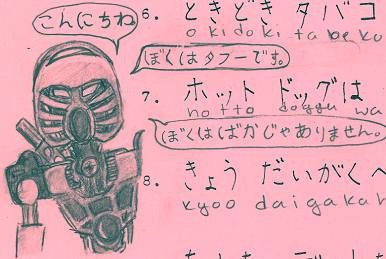 こんにちね
6. ときどき タバコ
okidoki tabeko
ぼくはタフーです。
7. ホット ドッグは
hotto doggu wa
ぼくはばかじゃありません。
8. きょう だいがくへ
kyoo